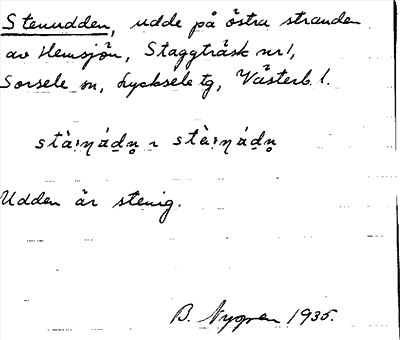 Stenudden, udde på östra stranden
av Hemsjön, Staggträsk nr 1,
Sorsele sn, Lycksele tg, Västerb. l.
stà:ṇádṇ̥ ~ stè:ṇádṇ̥
Udden är stenig.
B. Nygren 1935.